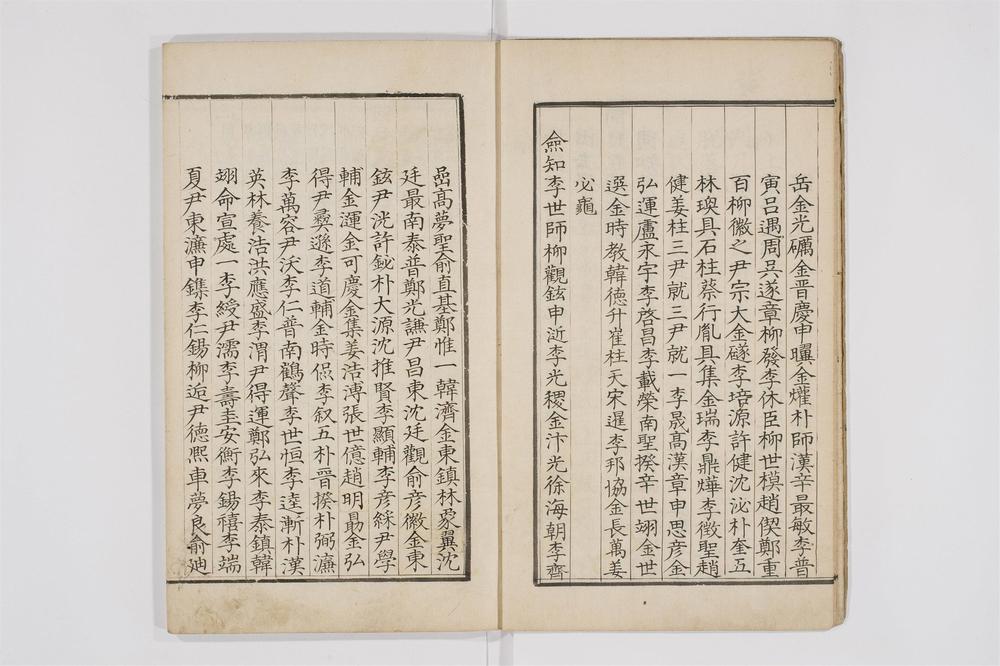 岳金光礪金晋慶申瓓金爟朴師漢辛最敏李普
寅吕遇周吴遂章柳發李休臣柳世模趙偰鄭重
百柳徽之尹宗大金礈李培源許健沈泌朴奎五
林瑍具石柱蔡行胤具集金瑞李鼎燁李徴聖趙
健姜柱三尹就三尹就一李晟髙漢章申思彦金
弘運盧永宇李啓昌李載榮南聖揆辛世翊金世
選金時教韓徳升崔柱天宋暹李邦協金長萬姜
必龜
僉知李世師柳觀鉉申近李光稷金汴光徐海朝李齊
嵒髙夢聖俞直基鄭惟一韓濟金東鎮林象翼沈
廷最南泰普鄭光謙尹昌東沈廷觀俞彦徽金東
鉉尹洸許鉍朴大源沈推賢李顯輔李彦綵尹學
輔金運金可慶金集姜浩溥張世億趙明勗金弘
得尹彛遜李道輔金時侃李叙五朴晋揆朴弼濂
李萬容尹沃李仁普南鶴聲李世恒李逵漸朴漢
英林養浩洪應盛李渭尹得運鄭弘來李泰鎮韓
翊命宣處一李綬尹濡李壽圭安衡李錫禧李端
夏尹東濂申鏶李仁錫柳逅尹徳熙車夢良俞廸